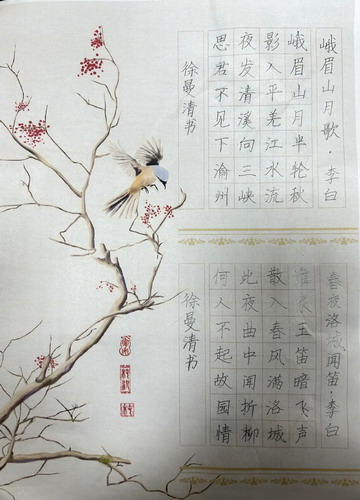 峨眉山月歌·李白
峨眉山月半轮秋
影入平羌江水流
夜发清溪向三峡
思君不见下渝州
徐曼清书
春夜洛城闻笛·李白
谁家玉笛暗飞声
散入春风满洛城
此夜曲中闻折柳
何人不起故园情
徐曼清书